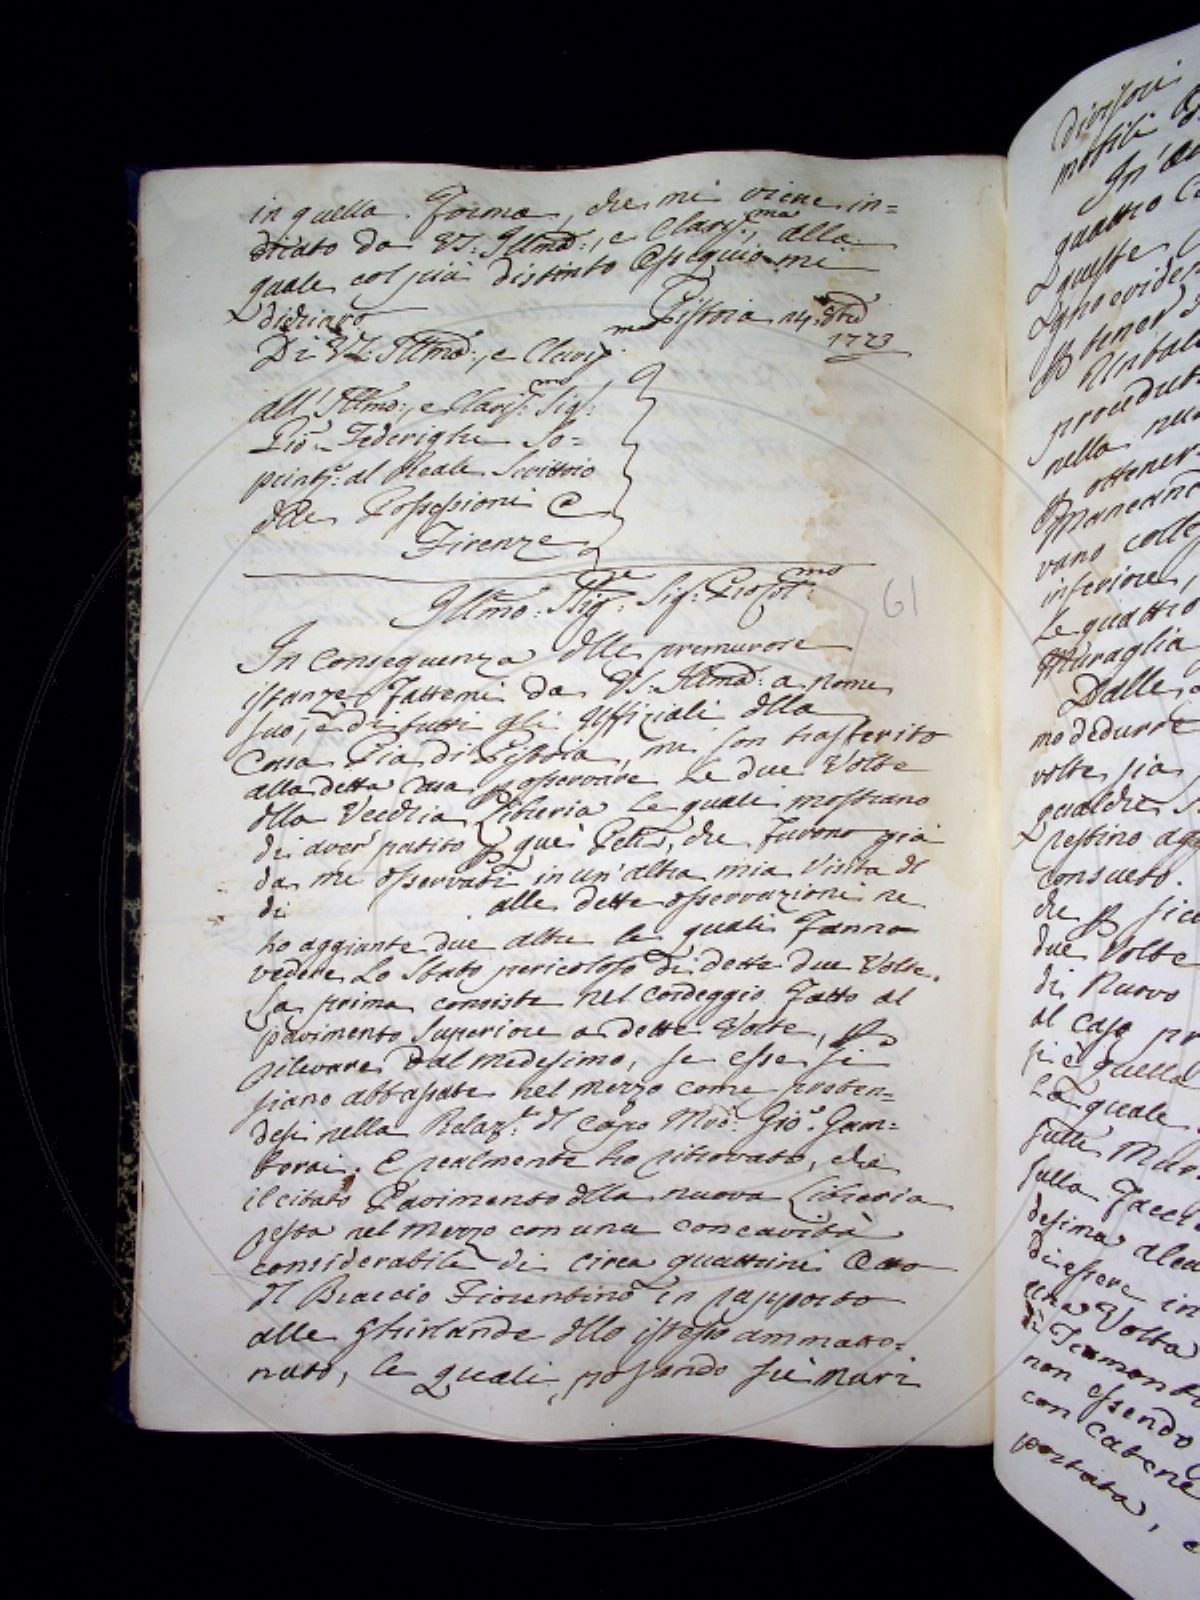 in quella Forma, che mi viene in=
dicato da VS. Illma:, e Clariss.ma, alla
quale col piu distinto Ossequio mi
dichiaro
Pistoia 14. 8bre
1773
Di VS. Illma:, e Clariss.ma
all' Illmo:, e Clariss.mo Sig:
Gio: Federighi So=
printe: al Reale Scrittoio
delle Possessioni &
Firenze
61
Illmo: Sig.re: Sig: Prone Col.mo
In conseguenza delle premurose
istanze fattemi da VS: Illma: a nome
suo, e di tutti gli Uffiziali della
Casa Pia di Pistoia, mi son trasferito
alla detta Casa p osservare le due Volte
della Vecchia Libreria le quali mostrano
di aver patito p quei Peli, che furono già
da me osservati in un' altra mia Visita del
di alle dette osservazioni ne
ho aggiunte due altre le quali fanno
vedere lo stato pericoloso di dette due Volte.
La prima consiste nel cordeggio fatto al
pavimento superiore a dette Volte, p
rilevare dal medesimo, se esse si
siano abbassate nel mezzo come preten=
desi nella Relaz.e del Capo Mro: Gio: Gam=
borai. E realmente ho ritrovato, che
il citato Pavimento della nuova Libreria
resta nel mezzo con una concavità
considerabile di circa quattrini Otto
del Braccio Fiorentino in rapporto
alle Ghirlande dello istesso ammatto=
nato, le quali posando sui muri
divisori
In'
quattro
queste
p tener
nella
p ottener
vano
inferiore,
Le quattro
Muraglia
Dalle
mo dedurre
volte sia
qualche
restino
consueto.
che p
due Volte
di Nuovo
al caso
si è quella
La quale
sulla
desima
di essere in
una Volta
non essendo
con catene
portata,